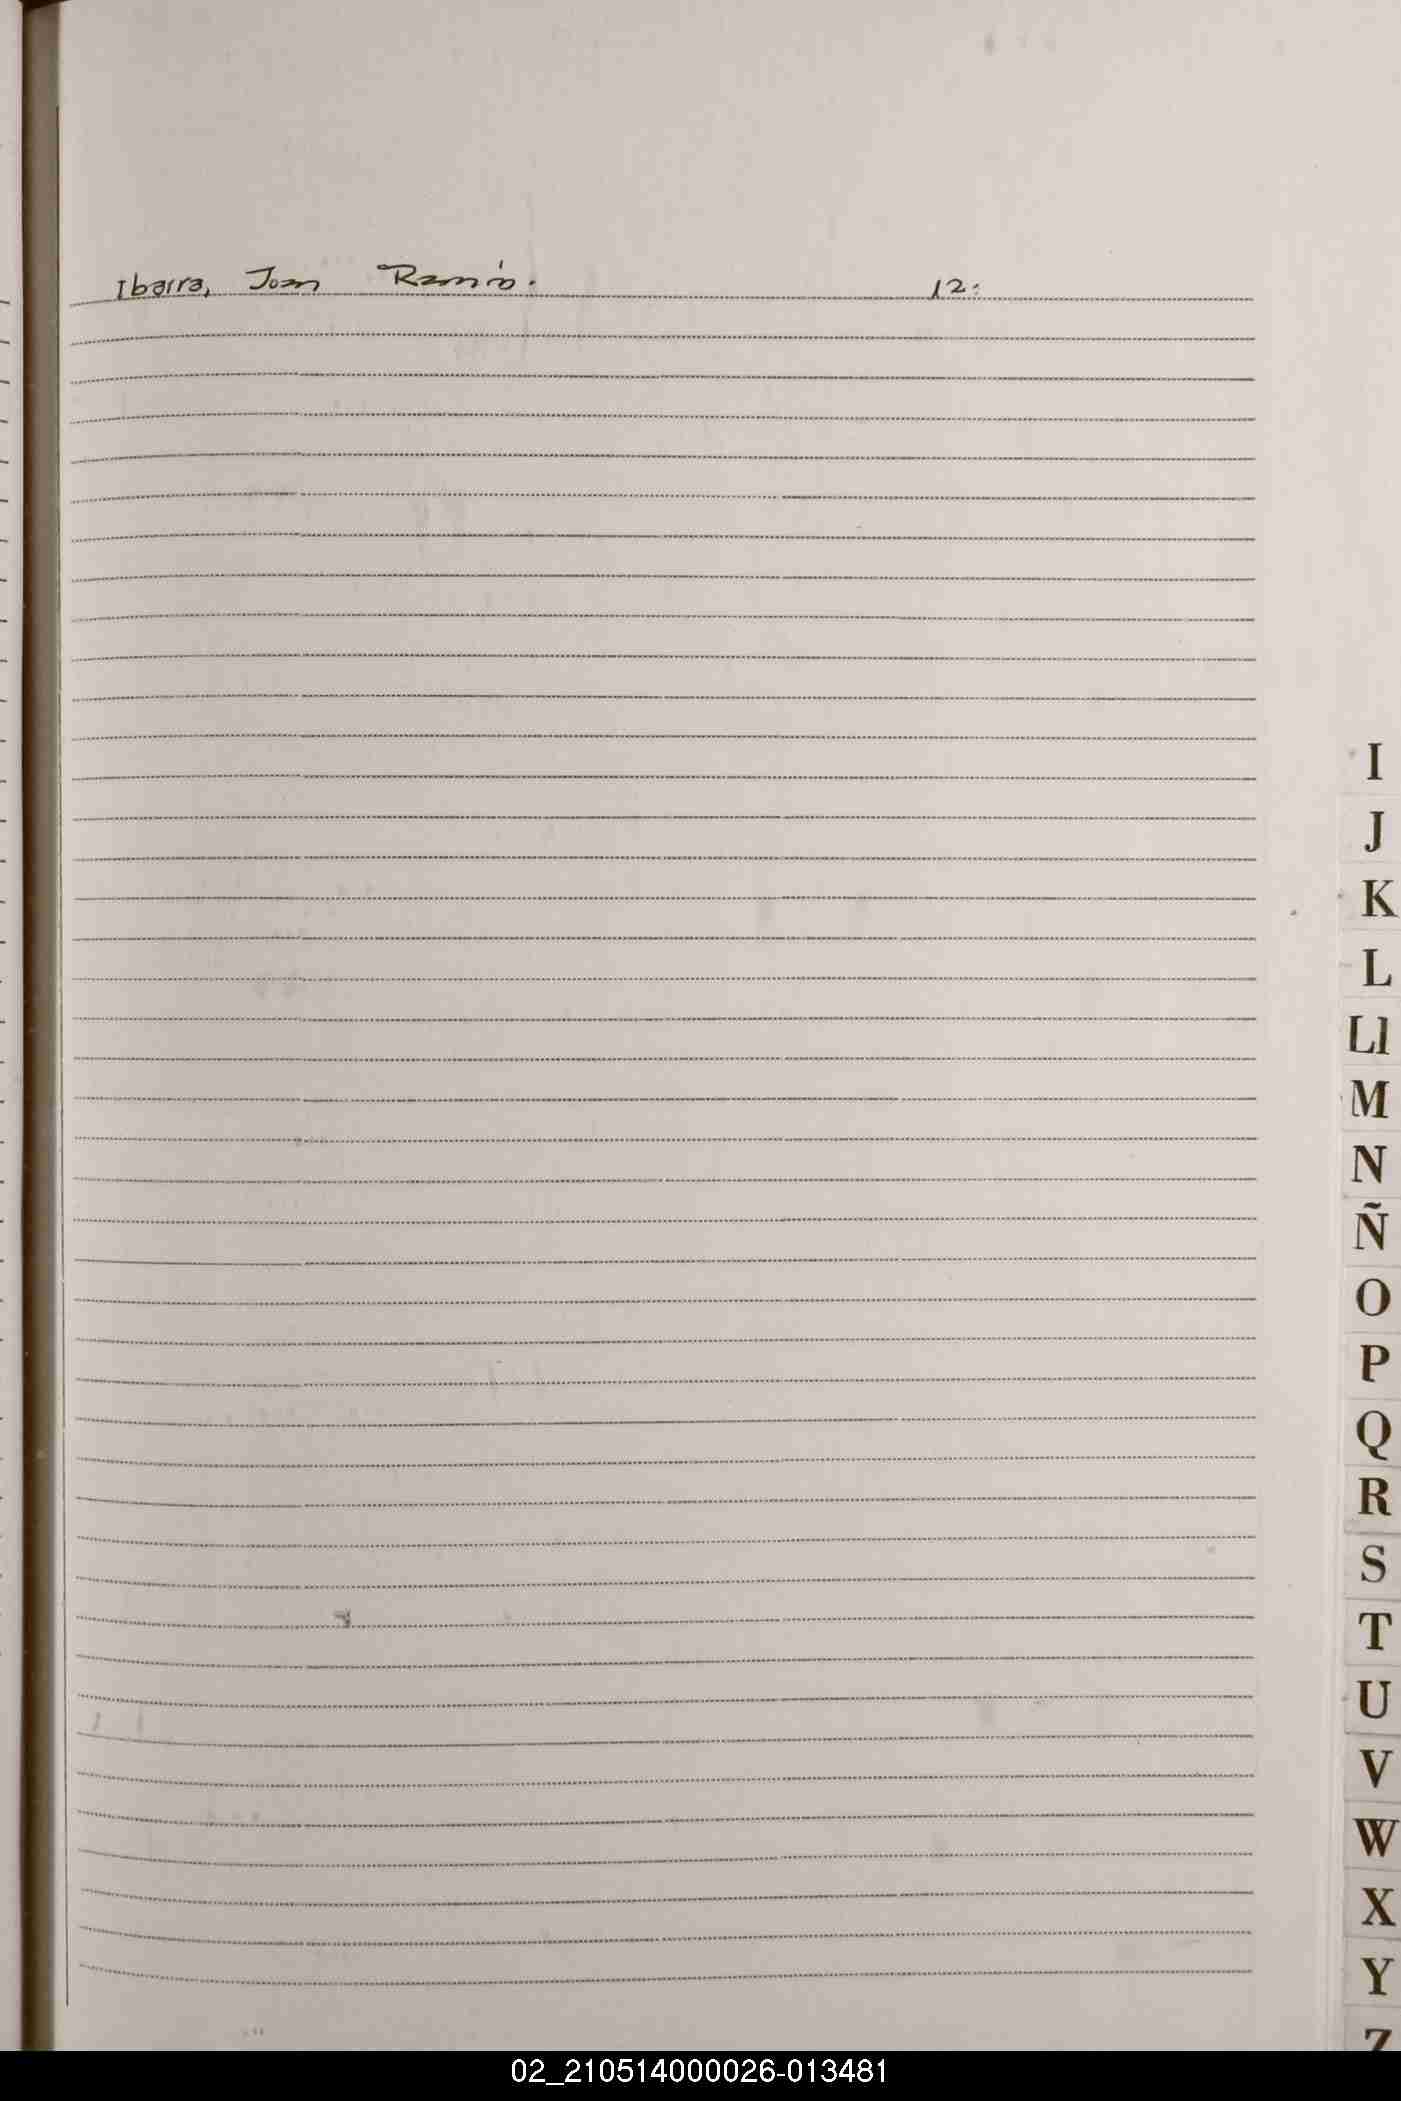 Ibarra, Joan Ramón. 12.
I
J
K
L
Ll
M
N
Ñ
O
P
Q
R
S
T
U
V
W
X
Y
Z
02_210514000026-013481